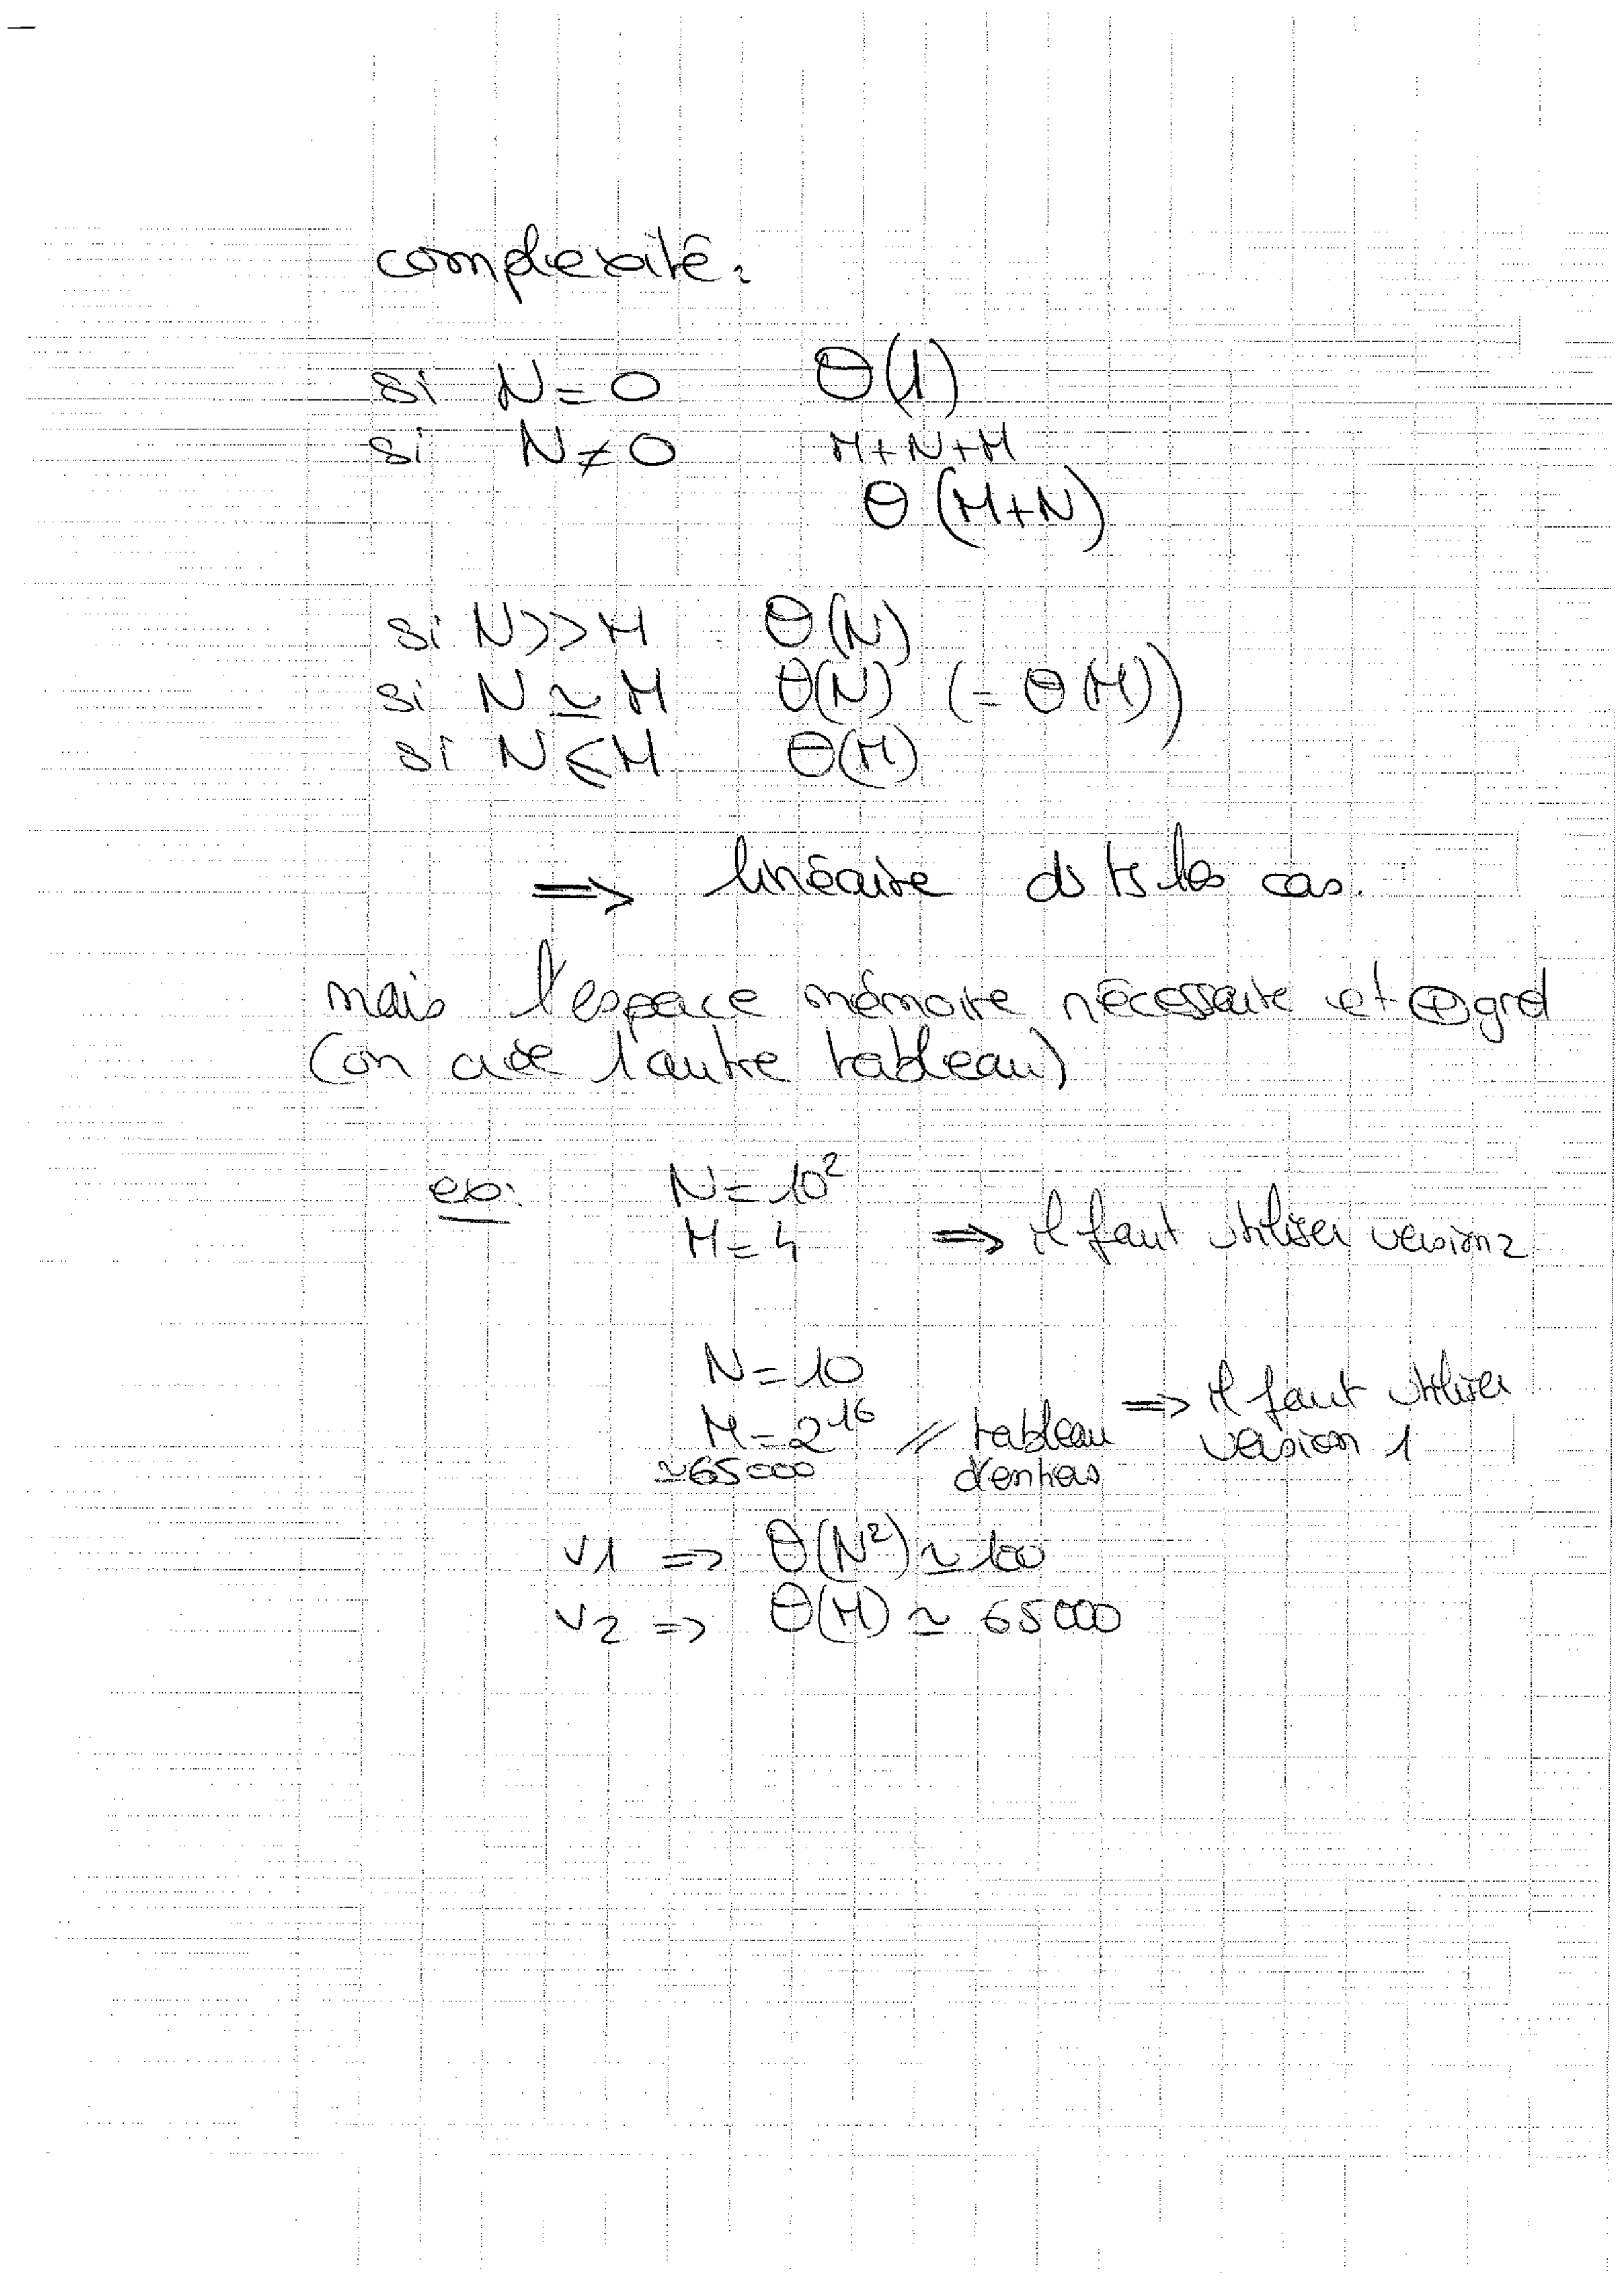 complexité :
si N = 0 Θ(1)
si N ≠ 0 M+N+M
Θ(M+N)
si N >> M Θ(N)
si N ≃ M Θ(N) (= Θ(M))
si N ⩽ M Θ(M)
⇒ linéaire ds ts les cas.
mais l'espace mémoire nécessaire et ⊕ grd
(on crée l'autre tableau)
ex: N = 10²
M = 4 ⇒ il faut utiliser version 2
N = 10
M = 2¹⁶ // tableau ⇒ il faut utiliser
≃65000 d'entiers version 1
V1 ⇒ Θ(N²) ≃ 100
V2 ⇒ Θ(M) ≃ 65000